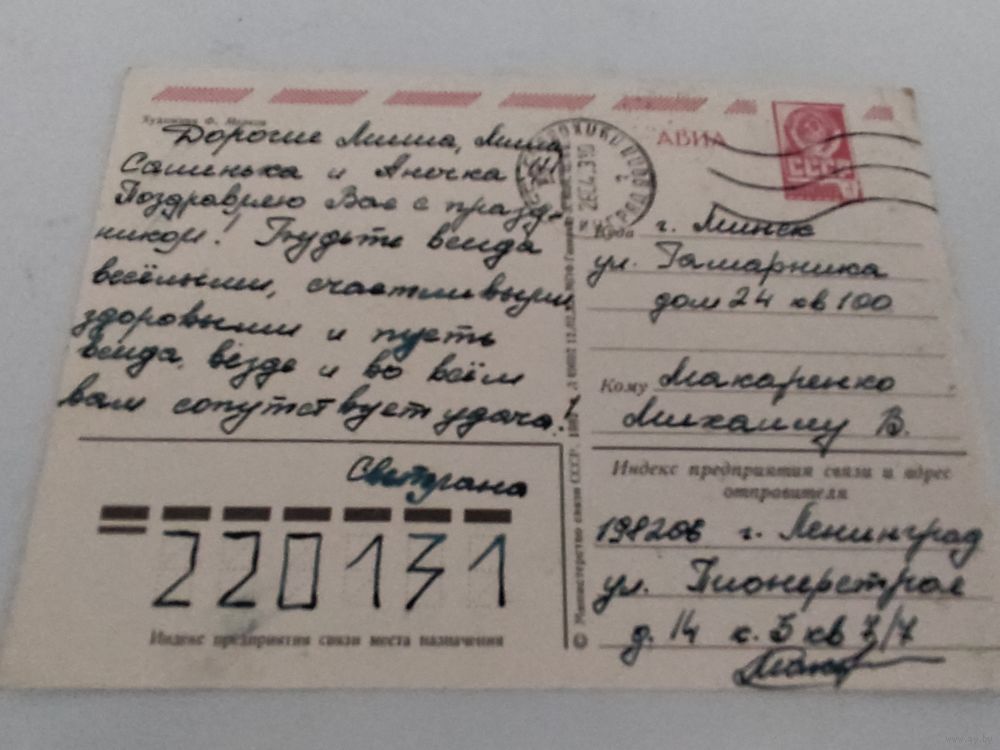 Художник Ф. Марков
АВИА
СССР
Дорогие Миша, Миша,
Сашенька и Анечка (!)
Поздравляю Вас с празд-
ником! Будьте всегда
весёлыми, счастливыми
здоровыми и пусть
всегда, везде и во всём
вам сопутствует удача!
Светлана
Куда г. Минск
ул. Гамарника
дом 24 кв 100
Кому Макаренко
Михаилу В.
Индекс предприятия связи и адрес
отправителя
198206 г. Ленинград
ул. Пионерстроя
д. 14 к. 5 кв
220131
Индекс предприятия связи места назначения
© Министерство связи СССР.